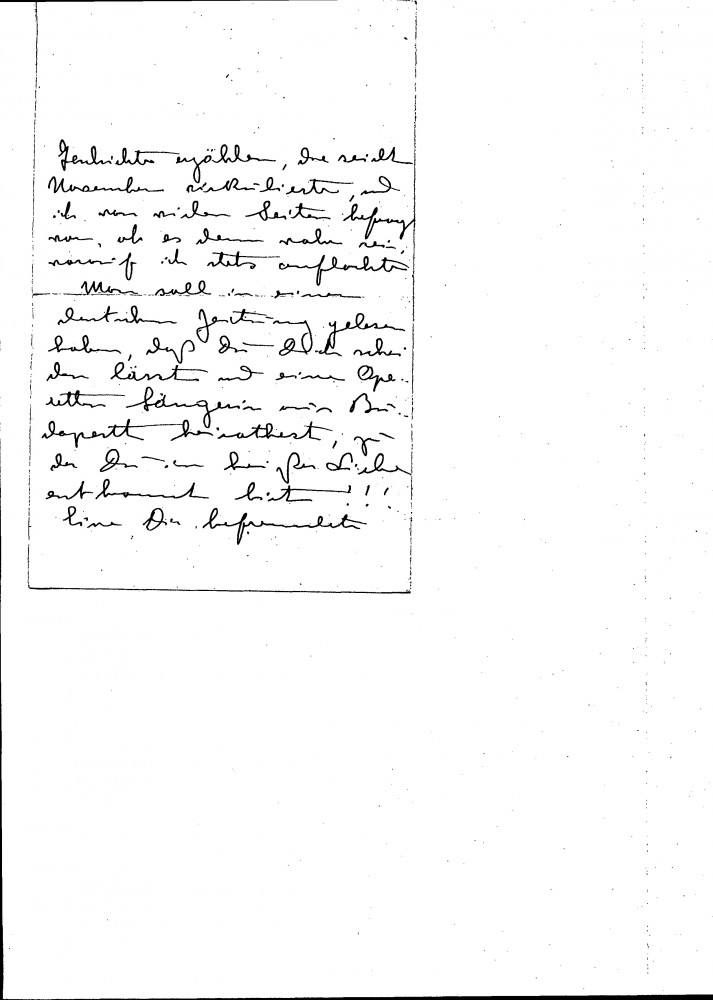 Geschichte erzählen, die seit
November zirkulierte, und
ich von vielen Seiten befrag
war, ob es denn wahr sei,
worauf ich stets auflachte
Man soll in einer
deutschen Zeitung gelesen
haben, daß Du Dich schei
den lässt und eine Ope-
retten Sängerin aus Bu-
dapestt heirathest, zu
der Du in heißer Liebe
entbrannt bist !!!
Eine Dir befreundete